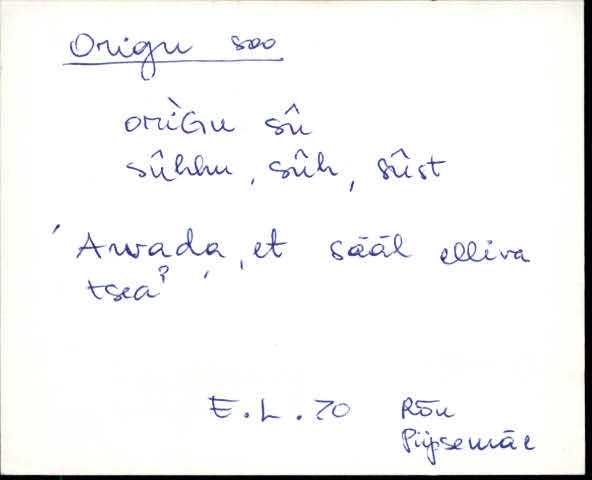 Origu soo
orìGu sû
sûhhu, sûh, sûst
'Awada, et sääl elliva
tsea?
E.L. 70 Rõu
Piipsemäe